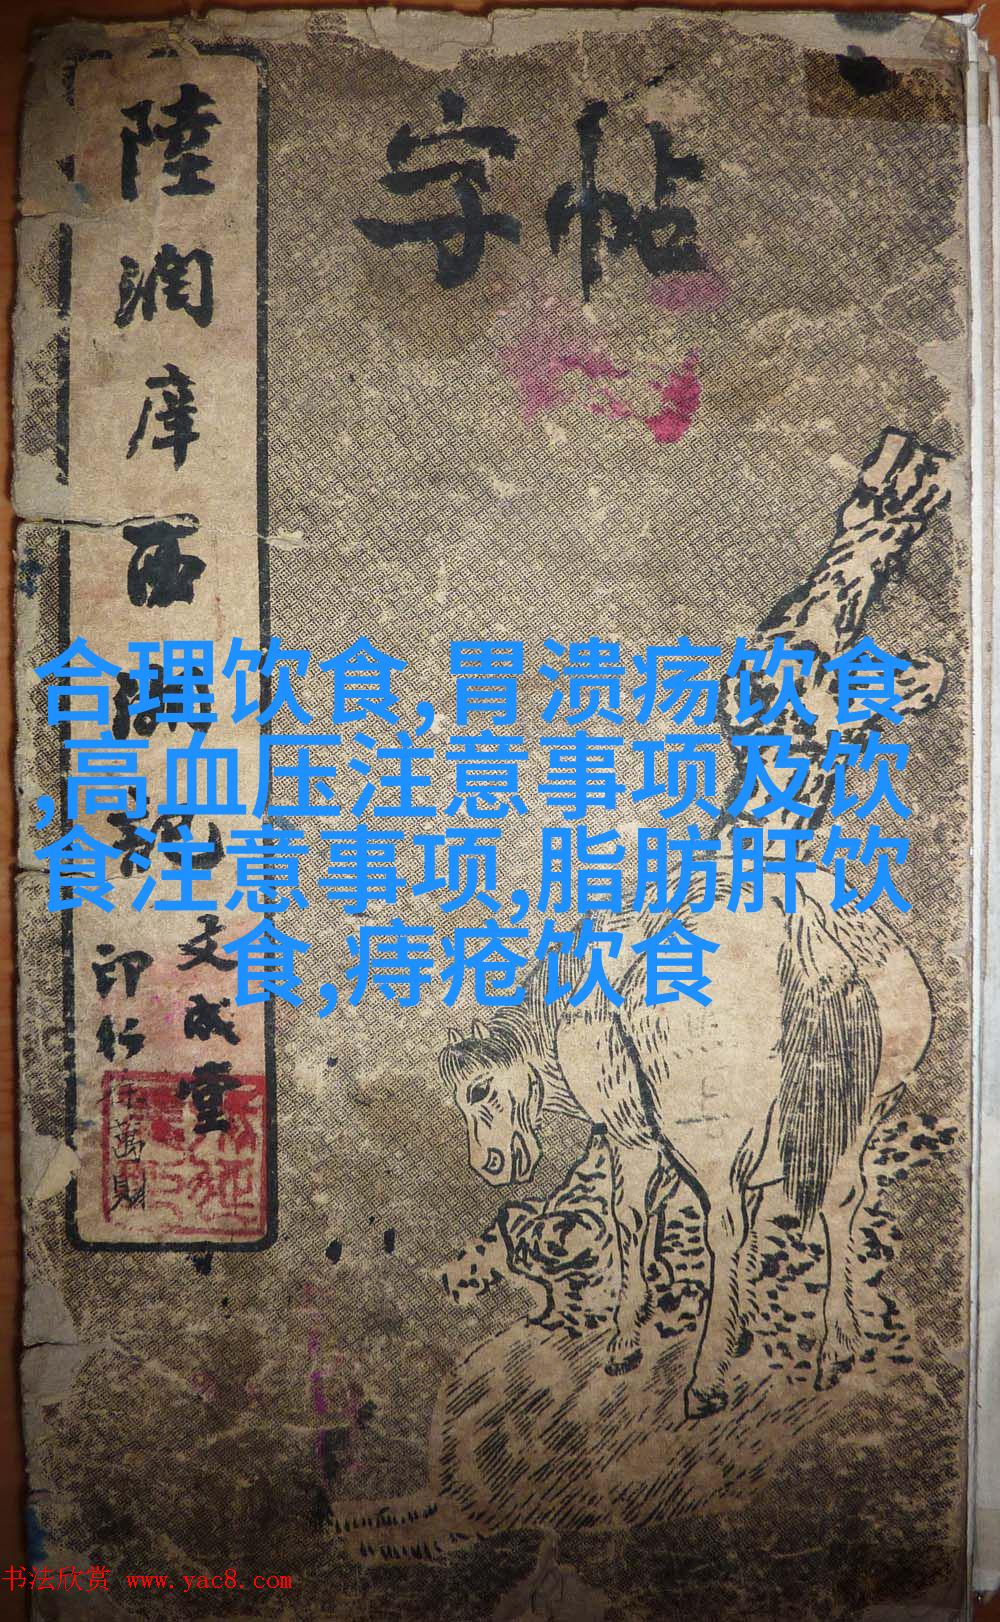 字帖
陸潤庠西湖記
文成堂
印行
徐萬財
合理饮食,胃溃疡饮食
,高血压注意事项及饮
食注意事项,脂肪肝饮
食,痔疮饮食
书法欣赏 www.yac8.com